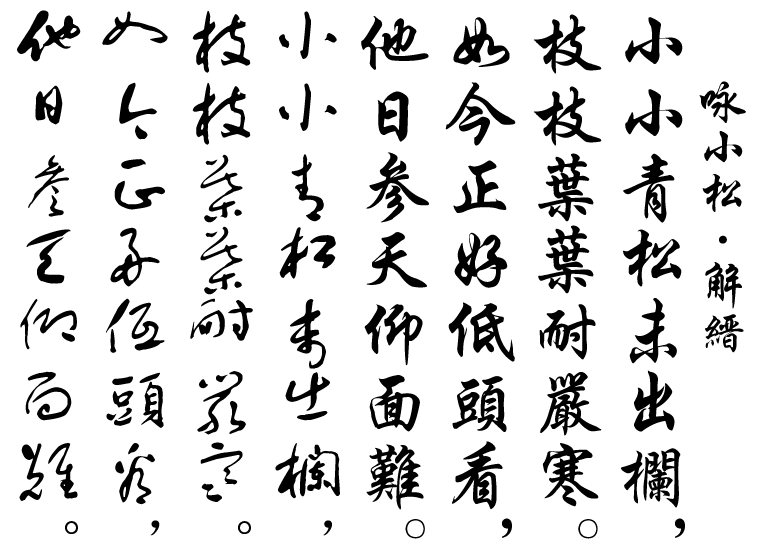 咏小松·解縉
小小青松未出欄，
枝枝葉葉耐嚴寒。
如今正好低頭看，
他日參天仰面難。
小小青松未出欄，
枝枝葉葉耐嚴寒。
如今正好低頭看，
他日參天仰面難。